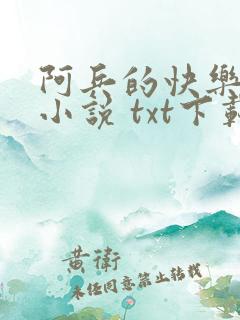 阿兵的快樂
小說 txt下載
黃衛
未經同意禁止轉載